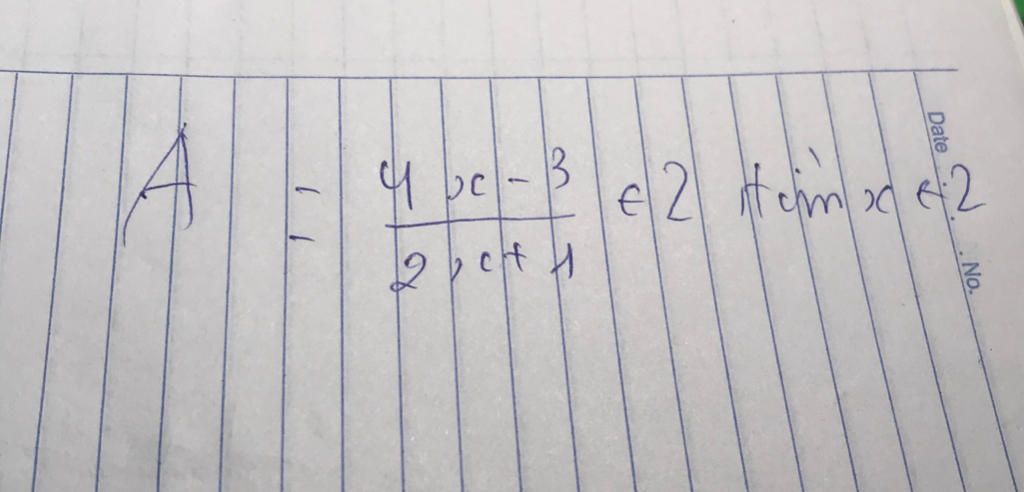 A = \frac{4x-3}{2x+1} ∈ Z tìm x ∈ Z
Date
No.